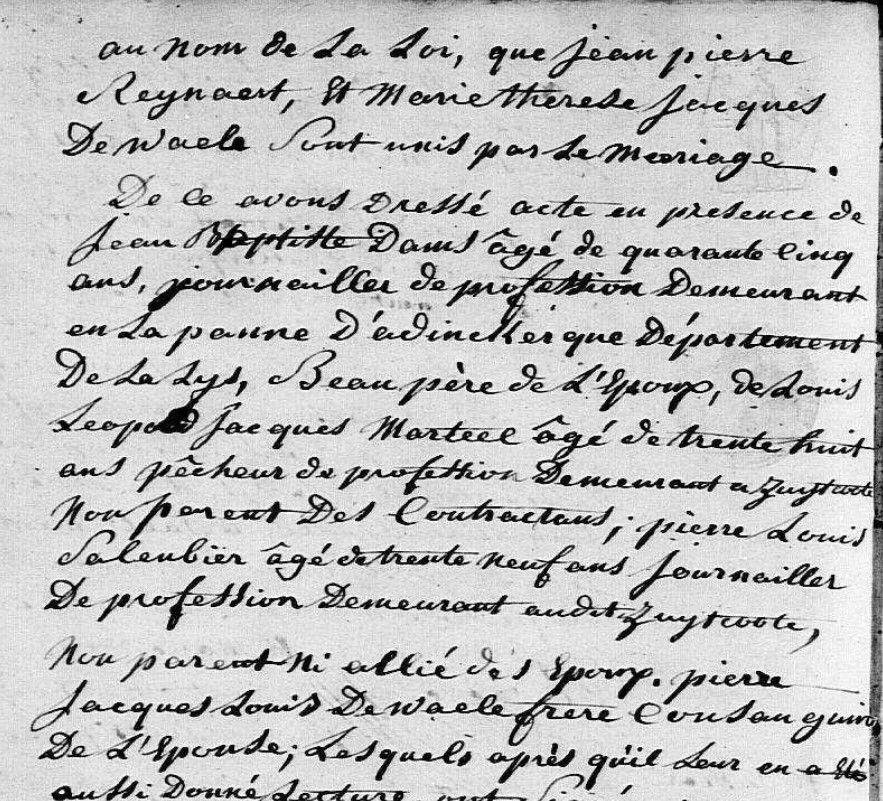 au nom de La Loi, que jean pierre
Reynaert, Et Marie therese jacques
De waele Sont unis par Le Mariage.
De ce avons Dressé acte en presence de
jean Baptiste Dams âgé de quarante Cinq
ans, journailler de profession Demeurant
en La panne D'adinckerque Département
De La Lys, Beau père de L'Epoux, de Louis
Leopold Jacques Marteel âgé de trente huit
ans pêcheur de profession Demeurant a Zuytcoote
Non parent Des Contractans; pierre Louis
Saleubier âgé de trente neuf ans Journailler
De profession Demeurant audit Zuytcoote,
Non parent Ni allié des Epoux. pierre
Jacques Louis De waele frere Consanguin
De L'Epouse; Lesquels après qu'il Leur en a été
aussi Donné Lecture, ont